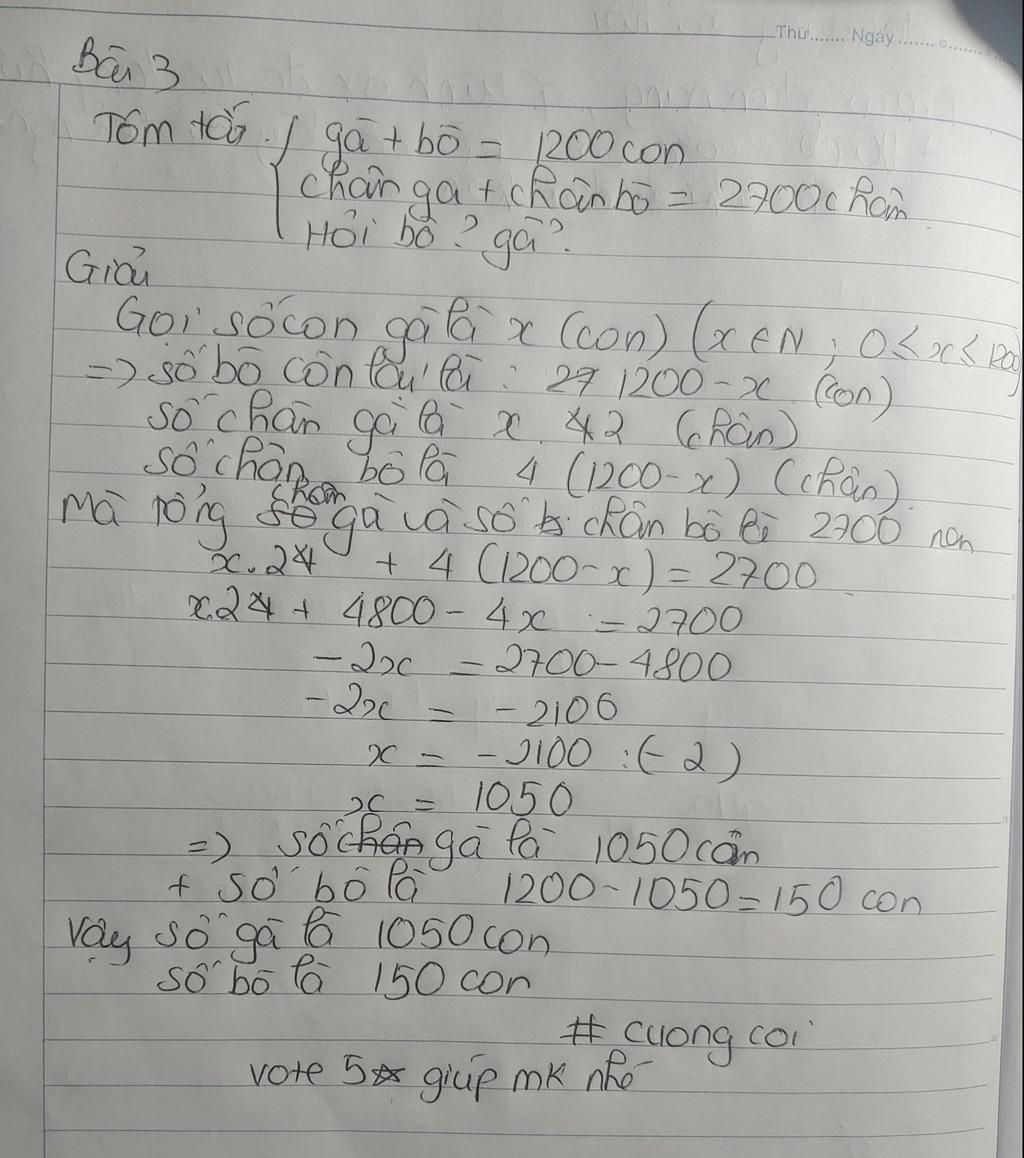 Thứ....... Ngày.............
Bài 3
Tóm tắt { gà + bò = 1200 con
chân gà + chân bò = 2700 chân
Hỏi bò? gà?
Giải
Gọi số con gà là x (con) (x ∈ N; 0 < x < 1200)
=> số bò còn lại là : 1200 - x (con)
số chân gà là x . 2 (chân)
số chân bò là 4 (1200 - x) (chân)
Mà tổng chân gà và số chân bò là 2700 nên
x.2 + 4 (1200 - x) = 2700
x.2 + 4800 - 4x = 2700
-2x = 2700 - 4800
-2x = -2100
x = -2100 : (-2)
x = 1050
=> số gà là 1050 con
+ số bò là 1200 - 1050 = 150 con
Vậy số gà là 1050 con
số bò là 150 con
# cuong coi
vote 5☆ giúp mk nhé